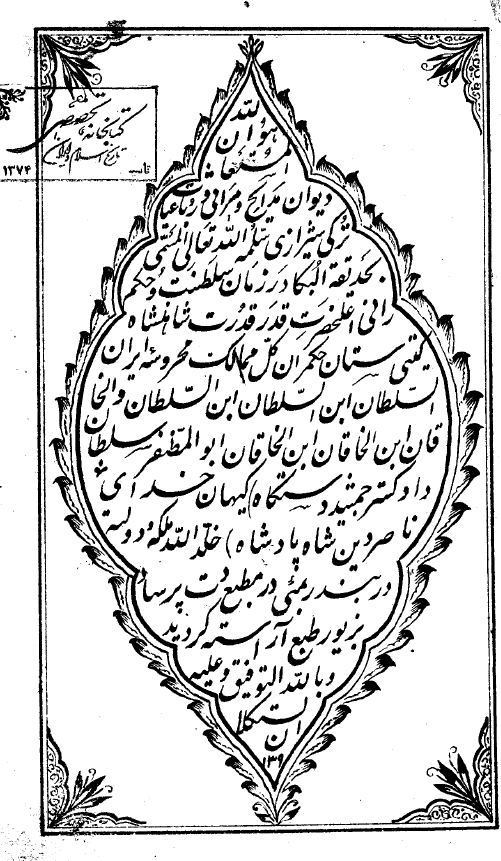 کتابخانه تخصصی
تاریخ اسلام و ایران
۱۳۷۴
هو الله
المستعان
دیوان مدایح و مراثی و رباعیات
ترکی شیرازی سلمه الله تعالی المسمی
بحدیقة البکا در زمان سلطنت و حکم
رانی اعلیحضرت قدر قدرت شاهنشاه
گیتی ستان حکمران کل ممالک محروسه ایران
السلطان ابن السلطان ابن السلطان والخا
قان ابن الخاقان ابن الخاقان ابو المظفر سلطان
دادگستر جمشید دستگاه کیهان خدای
ناصردین شاه پادشاه) خلد الله ملکه و دولته
در بندر بمبئی در مطبع دت پرساد
بزیور طبع آراسته گردید
و بالله التوفیق و علیه
التکلان